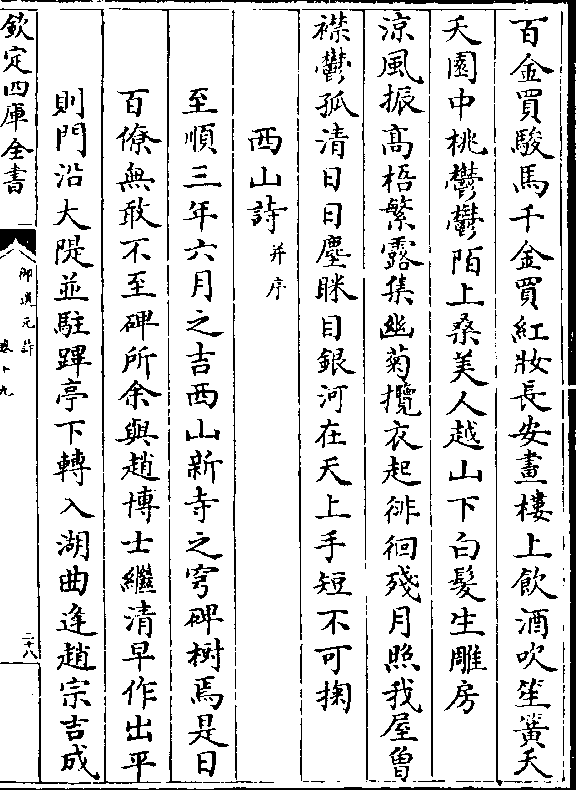 百金買駿馬千金買紅妝長安畫樓上飲酒吹笙簧天
夭園中桃鬱鬱陌上桑美人越山下白髮生雕房
涼風振高梧繁露集幽菊攬衣起徘徊殘月照我屋曾
襟鬱孤清日日塵眯目銀河在天上手短不可掬
西山詩并序
至順三年六月之吉西山新寺之穹碑樹焉是日
百僚無敢不至碑所余與趙博士繼清早作出平
則門沿大隄並駐蹕亭下轉入湖曲逢趙宗吉成
欽定四庫全書
御選元詩
卷十九
二十八